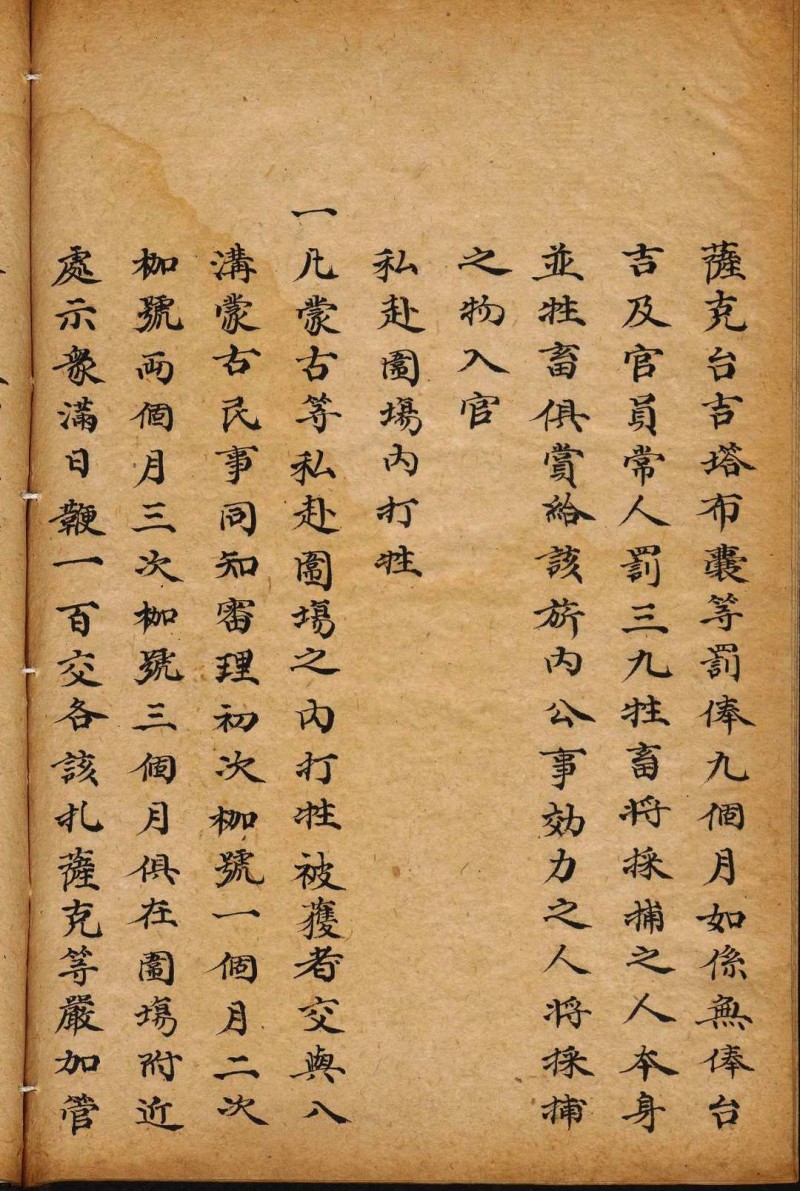 薩克台吉塔布囊等罰俸九個月如係無俸台
吉及官員常人罰三九牲畜將採捕之人本身
並牲畜俱賞給該旂內公事効力之人將採捕
之物入官
私赴圍場內打牲
一凡蒙古等私赴圍場之內打牲被獲者交與八
溝蒙古民事同知審理初次枷號一個月二次
枷號兩個月三次枷號三個月俱在圍場附近
處示衆滿日鞭一百交各該扎薩克等嚴加管